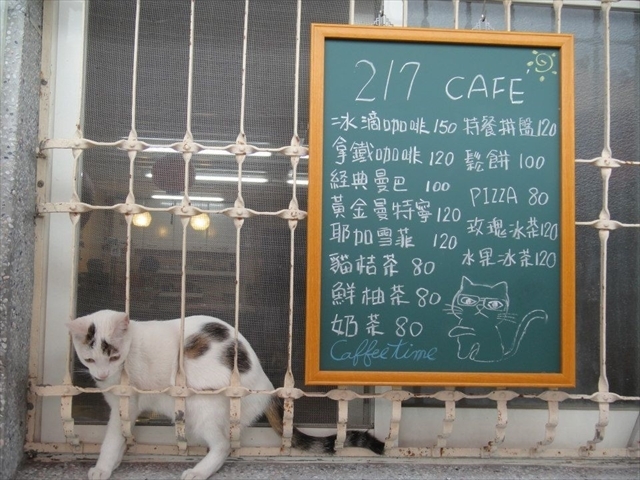 217 CAFE
冰滴咖啡 150
拿鐵咖啡 120
經典曼巴 100
黃金曼特寧 120
耶加雪菲 120
貓桔茶 80
鮮柚茶 80
奶茶 80
特餐拼盤 120
鬆餅 100
PIZZA 80
玫瑰冰茶 120
水果冰茶 120
Caffeetime